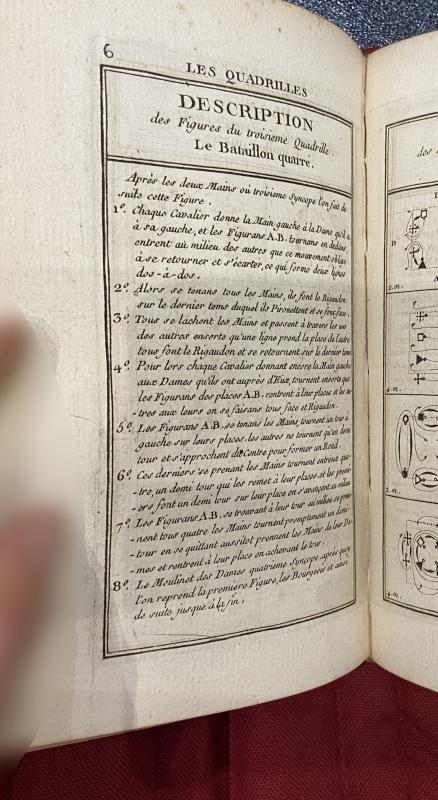 6
LES QUADRILLES
DESCRIPTION
des Figures du troisieme Quadrille.
Le Bataillon quarré.
Après les deux Mains où troisieme Syncope l'on fait de
suite cette Figure.
1º. Chaque Cavalier donne la Main gauche à la Dame qu'il a
à sa gauche, et les Figurans A.B. tournans en dedans
entrent au milieu des autres que ce mouvement oblige
à se retourner et s'écarter, ce qui forme deux lignes
dos-à-dos.
2º. Alors se tenans tous les Mains, ils font le Rigaudon
sur le dernier tems duquel ils Pirouettent et se font face.
3º. Tous se lachent les Mains et passent à travers les uns
des autres ensorte qu'une ligne prend la place de l'autre
tous font le Rigaudon et se retournent sur le dernier tems.
4º. Pour lors chaque Cavalier donnant encore la Main gauche
aux Dames qu'ils ont auprès d'Eux, tournent ensorte que
les Figurans des places A.B. rentrent à leur places et les au
-tres aux leurs en se faisans tous face et Rigaudon.
5º. Les Figurans A.B. se tenans les Mains, tournent un tour à
gauche sur leurs places, les autres ne tournent qu'un demi
tour et s'approchent du Centre pour former un Rond.
6º. Ces derniers se prenant les Mains tournent entreux qua-
-tre, un demi tour qui les remet à leur places et les premi-
-ers font un demi tour sur leur place en s'avançant au milieu
7º. Les Figurans A.B. se trouvant à leur tour au milieu se pren-
-nent tous quatre les Mains tournent promptement un demi-
-tour en se quittant aussitot prennent les Mains de leur Da-
-mes et rentrent à leur place en achevant le tour.
8º. Le Moulinet des Dames quatrieme Syncope après quoy
l'on reprend la premiere Figure, les Bourgeois et ainsi
de suite jusque à la fin.
des
D
2.m.
A
4.m.
2.m.
4.m.